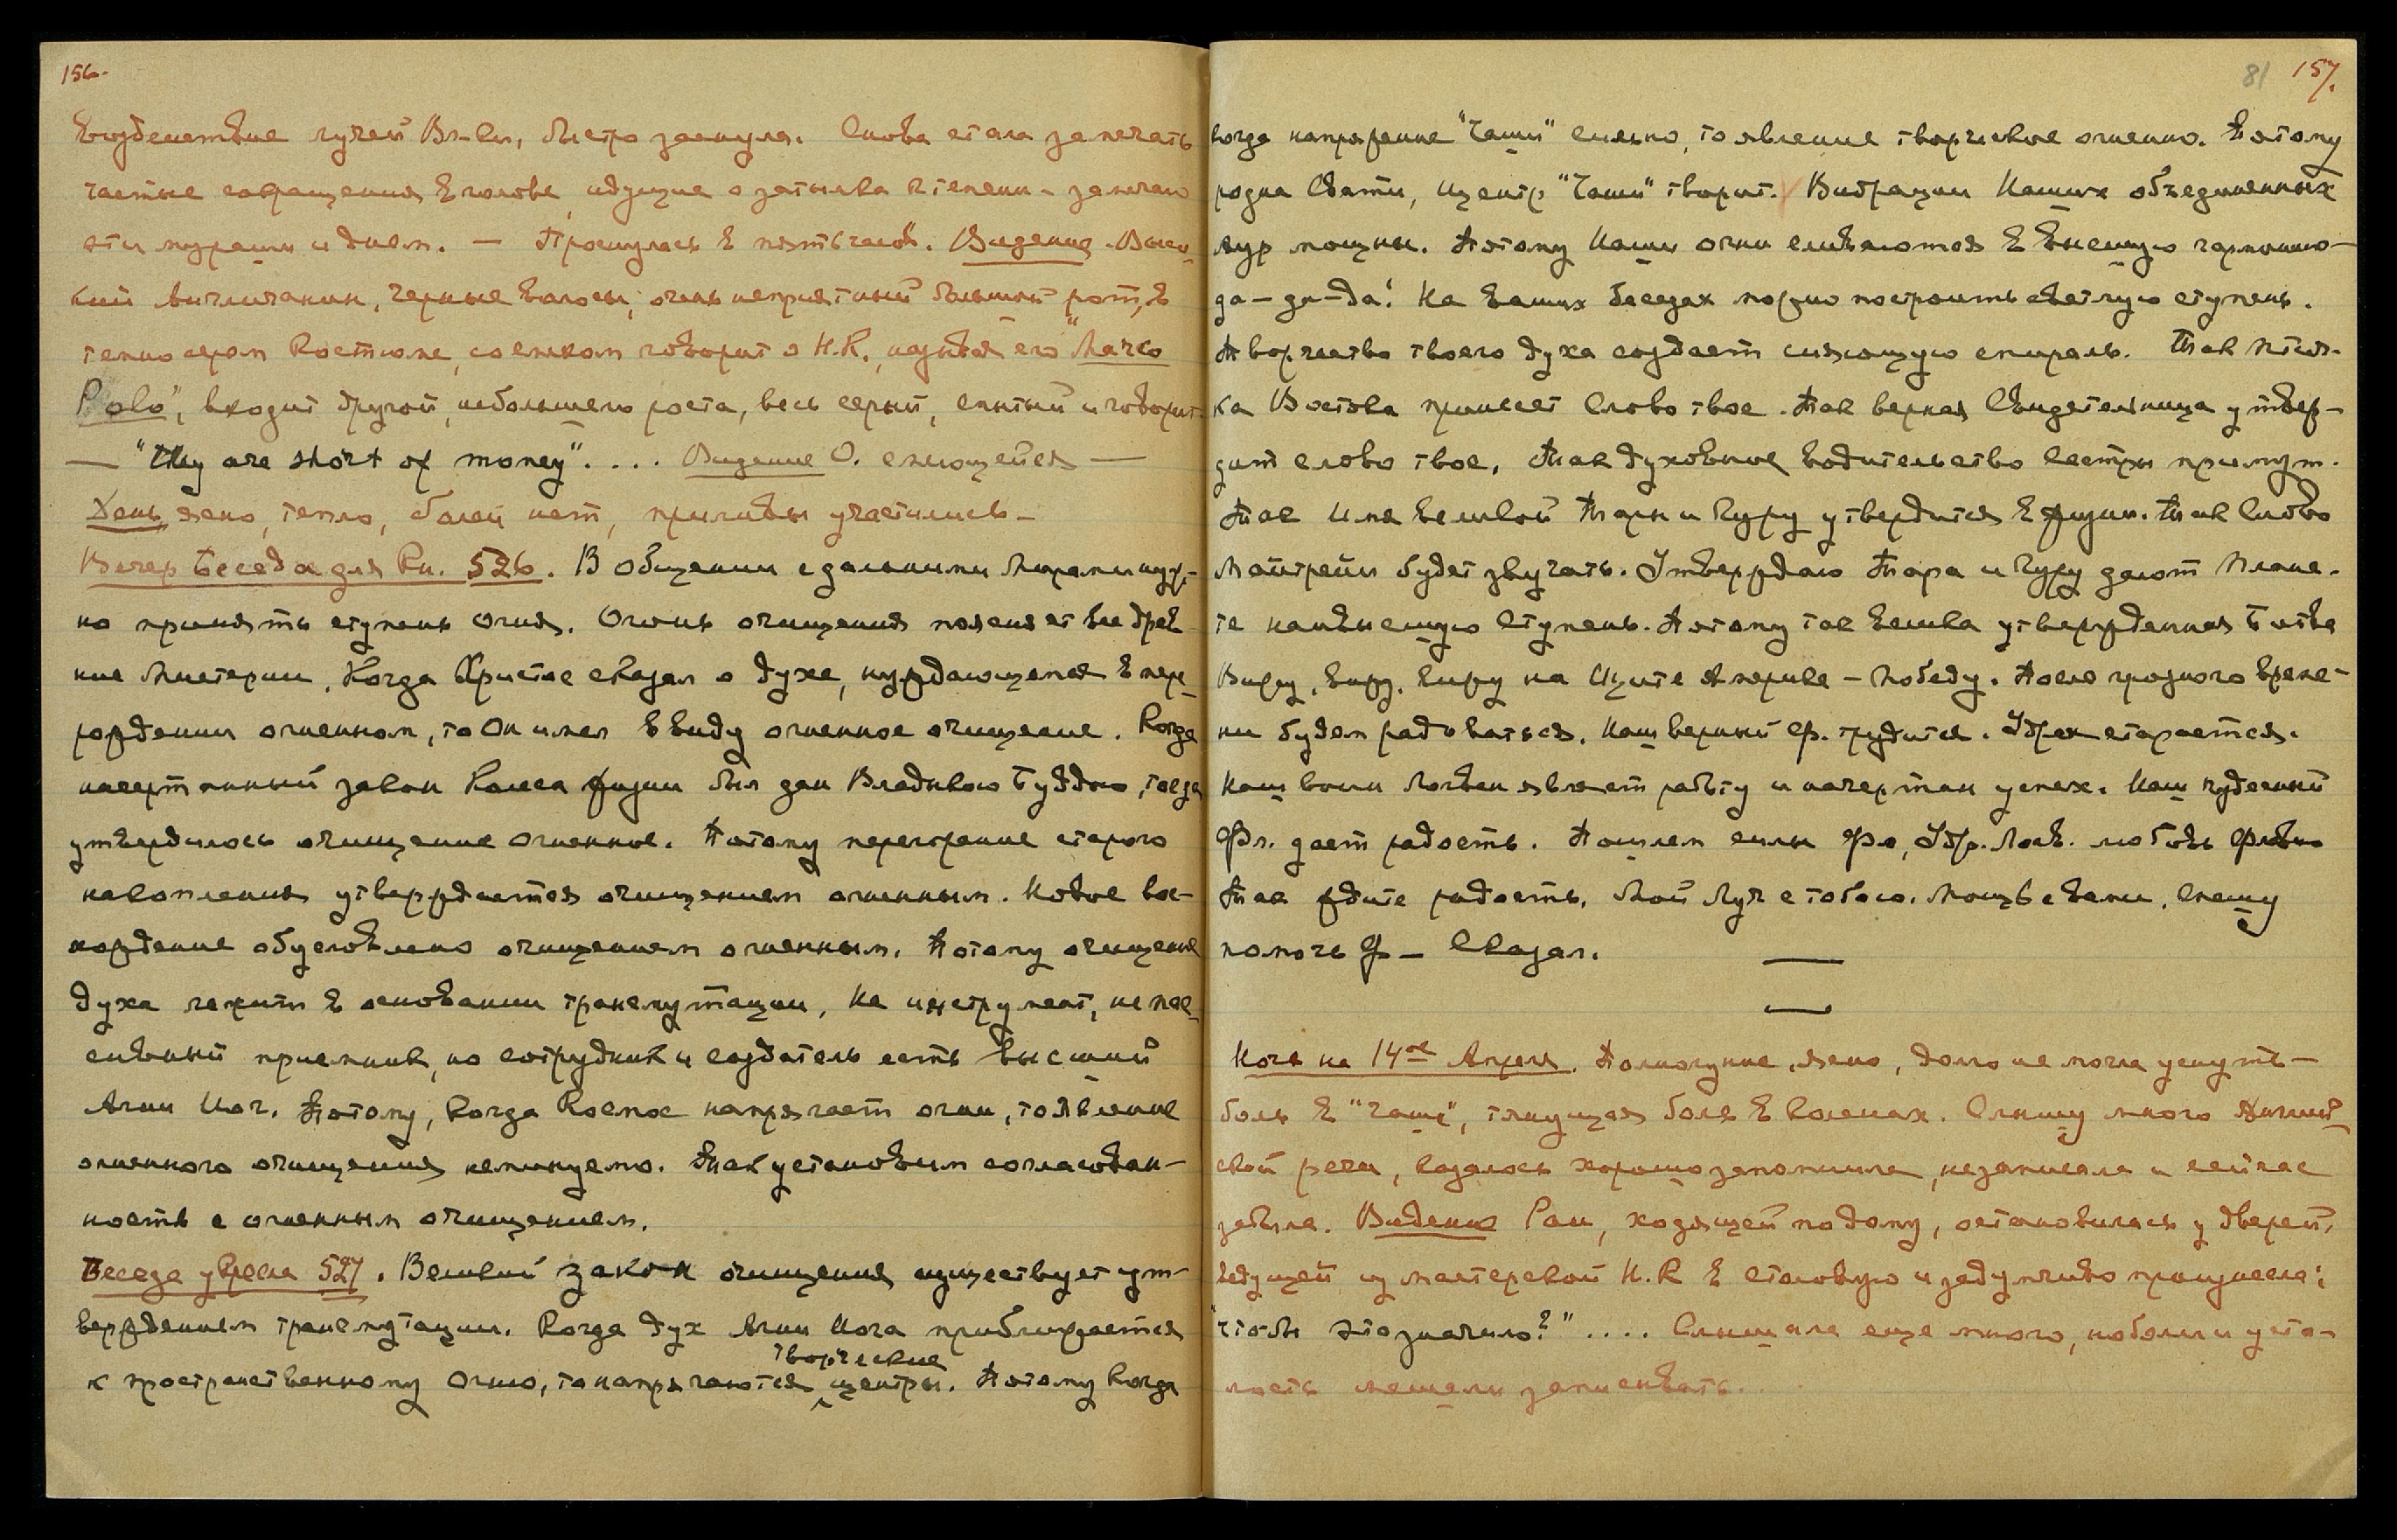 156.
Воздействие лучей Вл-ки, быстро заснула. Снова стала замечать
частые сокращения в голове, идущие о затылка к темени – замечаю
эти мурашки и днем. — Проснулась в пять часов. Видения – Высо-
кий Англичанин, черные волосы, очень неприятный большой рот, в
темно сером костюме, со смехом говорит о Н.К., называя его "Marco
Polo", входит другой, небольшого роста, весь серый, сытый и говорит
— "They are short of money".... Видение О. смеющейся —
День, ясно, тепло, болей нет, приливы участились –
Вечер Беседа для Кн. 526. В общении с дальними Мирами нуж-
но принять ступень огня. Огонь очищения поясняет все древ-
ние Мистерии. Когда Христос сказал о духе, нуждающемся в пере-
рождении огненном, то Он имел в виду огненное очищение. Когда
начертанный закон Колеса жизни был дан Владыкою Буддою, тогда
утвердилось очищение огненное. Потому перегорание старого
накопления утверждается очищением огненным. Новое вос-
хождение обусловлено очищением огненным. Потому очищение
духа лежит в основании трансмутации. Не инструмент, не пас-
сивный приемник, но сотрудник и создатель есть высший
Агни Йог. Потому, когда Космос напрягает огни, то явление
огненного очищения неминуемо. Так установим согласован-
ность с огненным очищением.
Беседа у Кресла 527. Великий закон очищения существует ут-
верждением трансмутации. Когда дух Агни Йога приближается
к пространственному огню, то напрягаются творческие центры. Потому когда
81 157.
когда напряжение "Чаши" сильно, то явление творческое огненно. Потому
родна Свати, центр "Чаши" творит. Вибрации Наших объединенных
аур мощны. Потому Наши огни сливаются в высшую гармонию –
да – да – да! На ваших беседах можно построить светлую ступень.
Творчество твоего духа создает сияющую спираль. Так Птич-
ка Востока принесет Слово твое. Так верная Свидетельница утвер-
дит слово твое. Так духовное водительство сестры примут.
Так Имя великой Тары и Гуру утвердится в жизни. Так Слово
Майтрейи будет звучать. Утверждаю Тара и Гуру дают плане-
те наивысшую Ступень. Потому так велика утвержденная Битва
Вижу, вижу, вижу на Щите Америке – победу. После грозного време-
ни будем радоваться. Наш верный Ф. трудится. Удрая старается.
Наш воин Логван являет работу и начертан успех. Наш чудесный
Фл. дает радость. Пошлем силы Ф., Удр. Логв. любовь
Так ждите радость. Мой Луч с тобою. Мощь с вами. Спешу
помочь Ф – Сказал.
—
—
Ночь на 14ое Апреля. Полнолуние, ясно, долго не могла уснуть –
боль в "Чаше", тянущая боль в коленах. Слышу много Англий-
ской речи, казалось хорошо запомнила, не записала и сейчас
забыла. Видение Раи, ходящей по дому, остановилась у дверей,
ведущей из мастерской Н.К. в столовую и задумчиво произнесла:
"что бы это значило?".... Слышала еще много, но боли и уста-
лость мешали записывать.